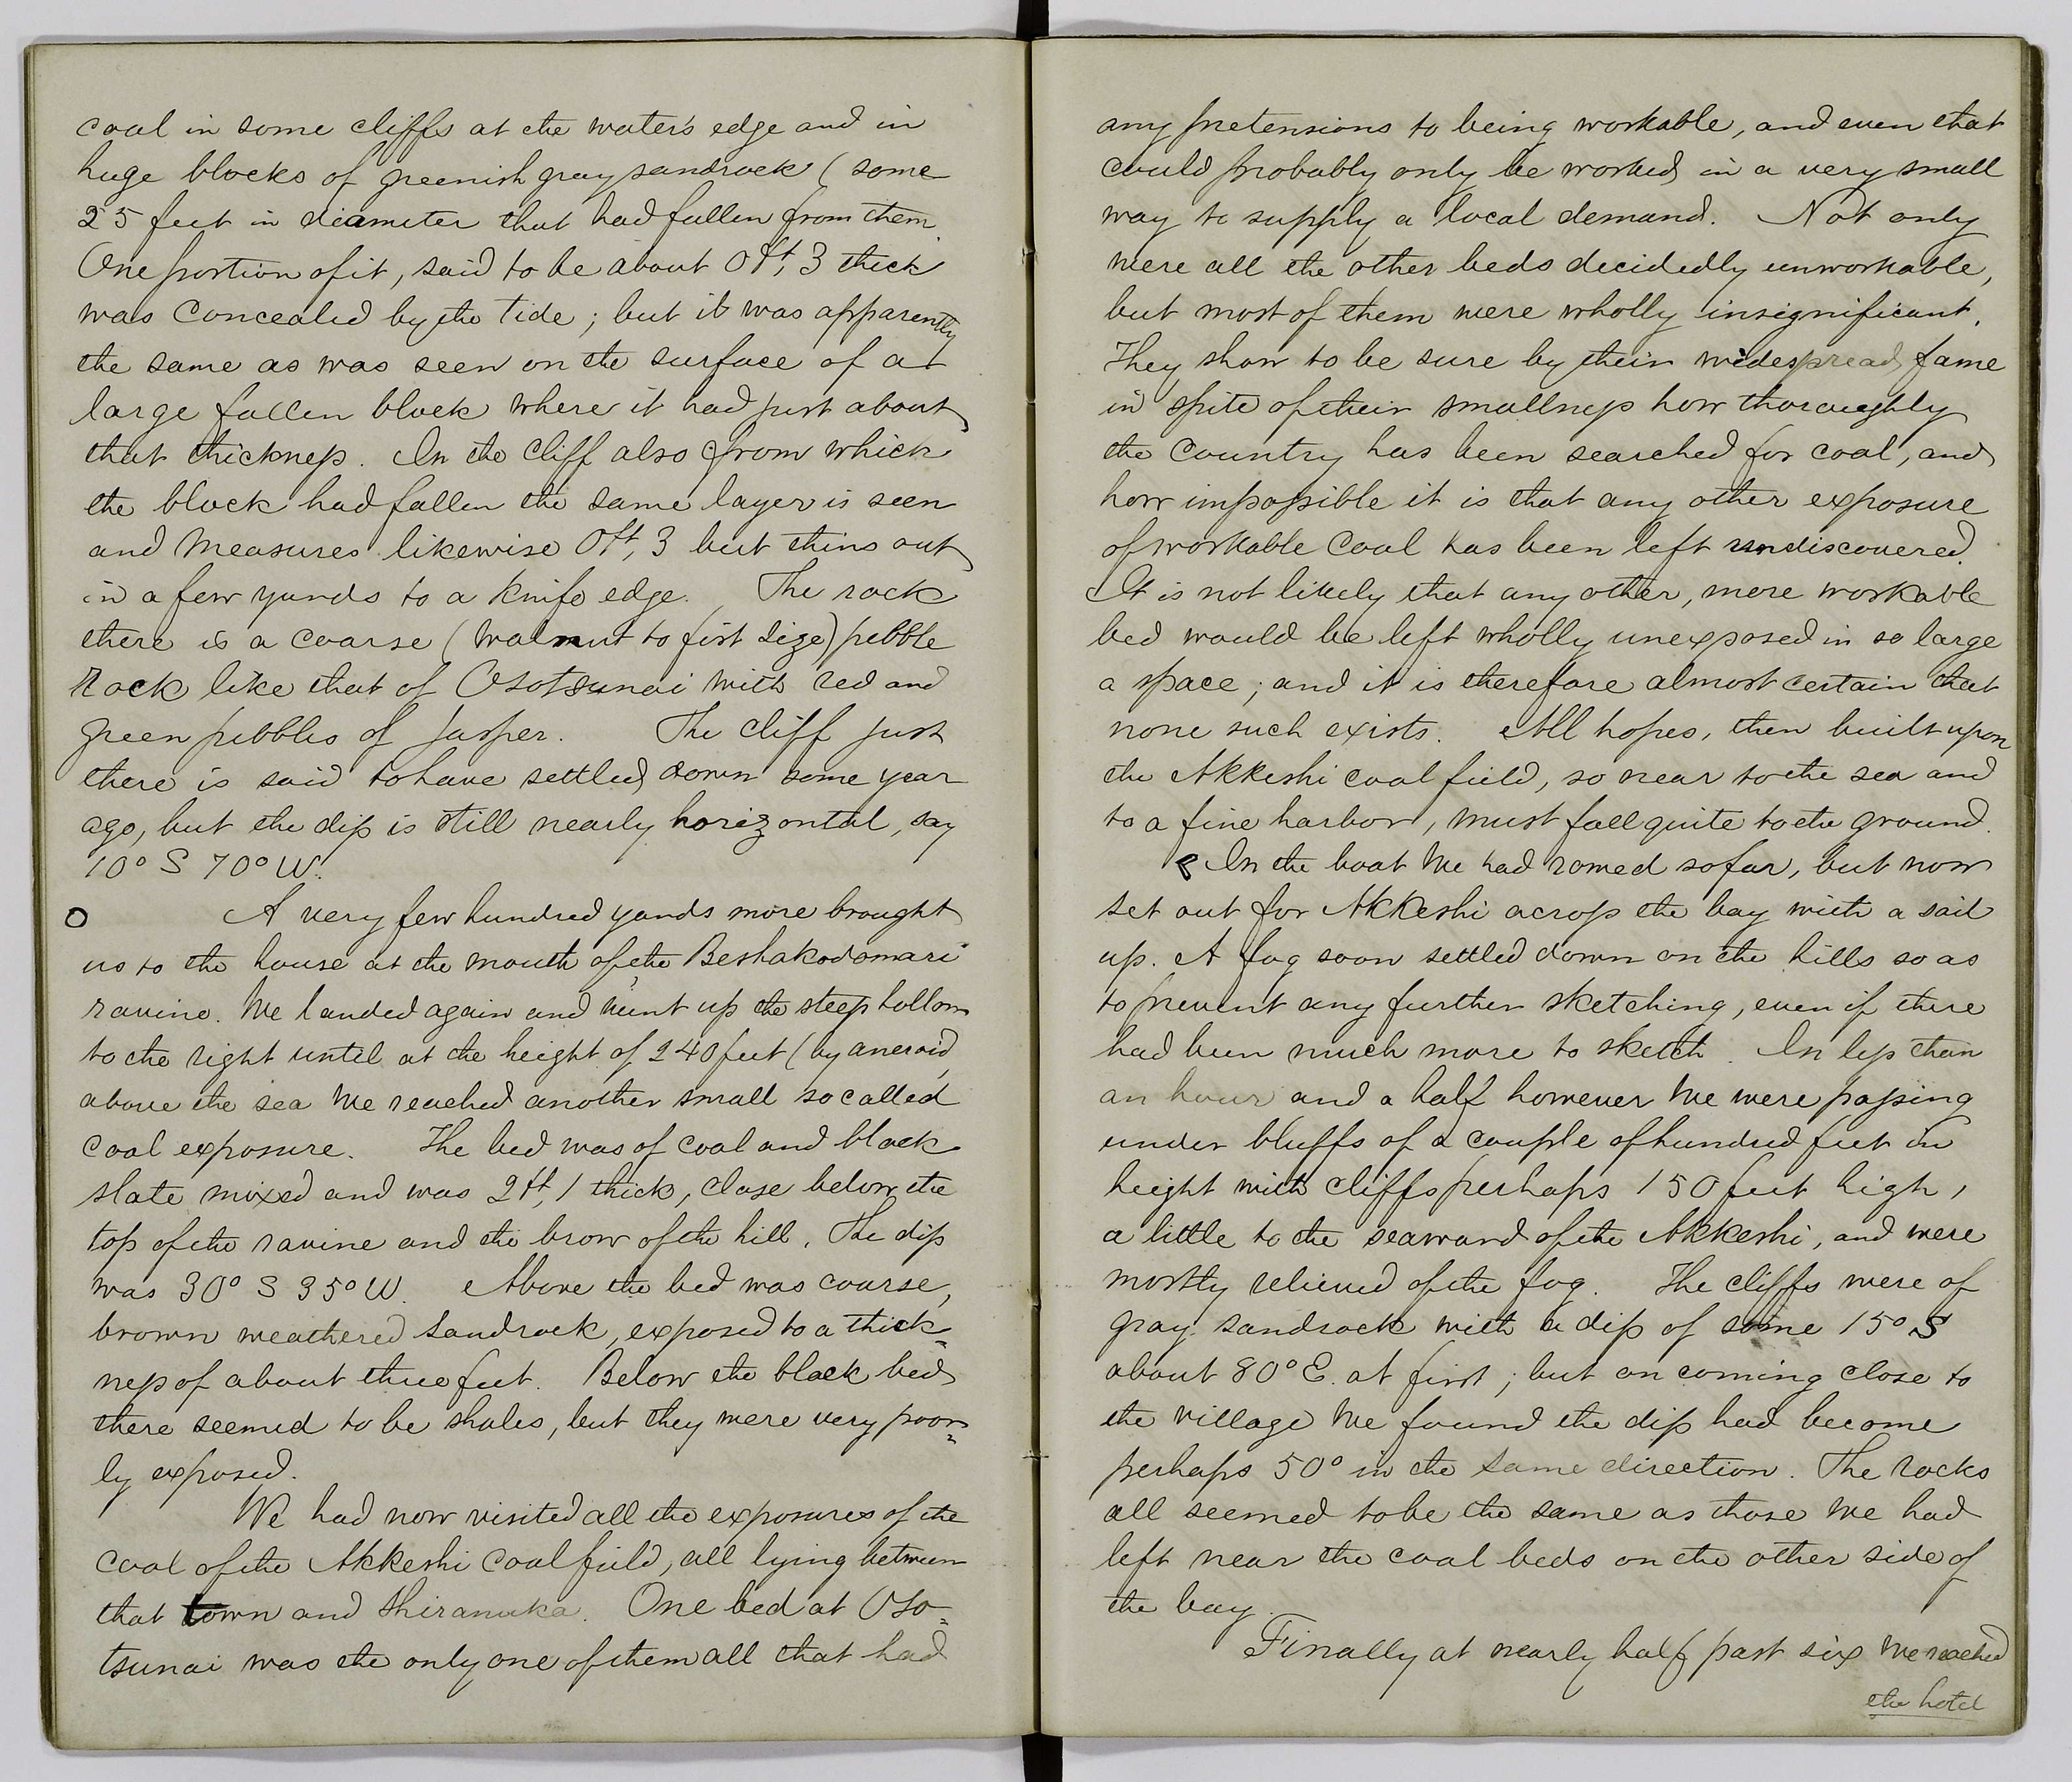 coal in some cliffs at the water's edge and in
huge blocks of greenish gray sandrock (some
25 feet in diameter that had fallen from them.
One portion of it, said to be about 0 ft, 3 thick
was concealed by the tide; but it was apparently
the same as was seen on the surface of a
large fallen block where it had just about
that thickness. In the cliff also from which
the block had fallen the same layer is seen
and measures likewise 0 ft, 3 but thins out
in a few yards to a knife edge. The rock
there is a coarse (walnut to fist size) pebble
rock like that of Osotsunai with red and
green pebbles of jasper. The cliff just
there is said to have settled down some year
ago, but the dip is still nearly horizontal, say
10° S 70° W.
O A very few hundred yards more brought
us to the house at the mouth of the Beshakodomari
ravine. We landed again and went up the steep hollow
to the right until at the height of 240 feet (by aneroid)
above the sea we reached another small so called
coal exposure. The bed was of coal and black
slate mixed and was 2 ft, 1 thick, close below the
top of the ravine and the brow of the hill. The dip
was 30° S 35° W. Above the bed was coarse,
brown weathered sandrock, exposed to a thick=
ness of about three feet. Below the black bed
there seemed to be shales, but they were very poor=
ly exposed.
We had now visited all the exposures of the
coal of the Akkeshi coal field, all lying between
that town and Shiranuka. One bed at Oso=
tsunai was the only one of them all that had
any pretensions to being workable, and even that
could probably only be worked in a very small
way to supply a local demand. Not only
were all the other beds decidedly unworkable,
but most of them were wholly insignificant.
They show to be sure by their widespread fame
in spite of their smallness how thoroughly
the country has been searched for coal, and
how impossible it is that any other exposure
of workable coal has been left undiscovered.
It is not likely that any other, more workable
bed would be left wholly unexposed in so large
a space; and it is therefore almost certain that
none such exists. All hopes, then built upon
the Akkeshi coal field, so near to the sea and
to a fine harbor, must fall quite to the ground.
In the boat we had rowed so far, but now
set out for Akkeshi across the bay with a sail
up. A fog soon settled down on the hills so as
to prevent any further sketching, even if there
had been much more to sketch. In less than
an hour and a half however we were passing
under bluffs of a couple of hundred feet in
height with cliffs perhaps 150 feet high,
a little to the seaward of the Akkeshi, and were
mostly relieved of the fog. The cliffs were of
gray sandrock with a dip of some 15° S
about 80° E. at first; but on coming close to
the village we found the dip had become
perhaps 50° in the same direction. The rocks
all seemed to be the same as those we had
left near the coal beds on the other side of
the bay.
Finally at nearly half past six we reached
the hotel